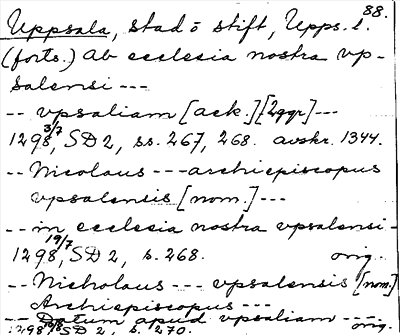 88.
Uppsala, stad o stift, Upps. l.
(forts.) ab ecclesia nostra vp-
salensi ---
-- vpsaliam [ack.] [2ggr] ---
1298 3/7, SD 2, ss. 267, 268. avskr. 1344.
-- Nicolaus --- archiepiscopus
vpsalensis [nom.] ---
-- in ecclesia nostra vpsalensi -
1298 19/7, SD 2, s. 268. orig.
-- Nicholaus --- vpsalensis [nom.]
Archiepiscopus ---
-- Datum apud vpsaliam ---
1298, SD 2, s. 270. orig.